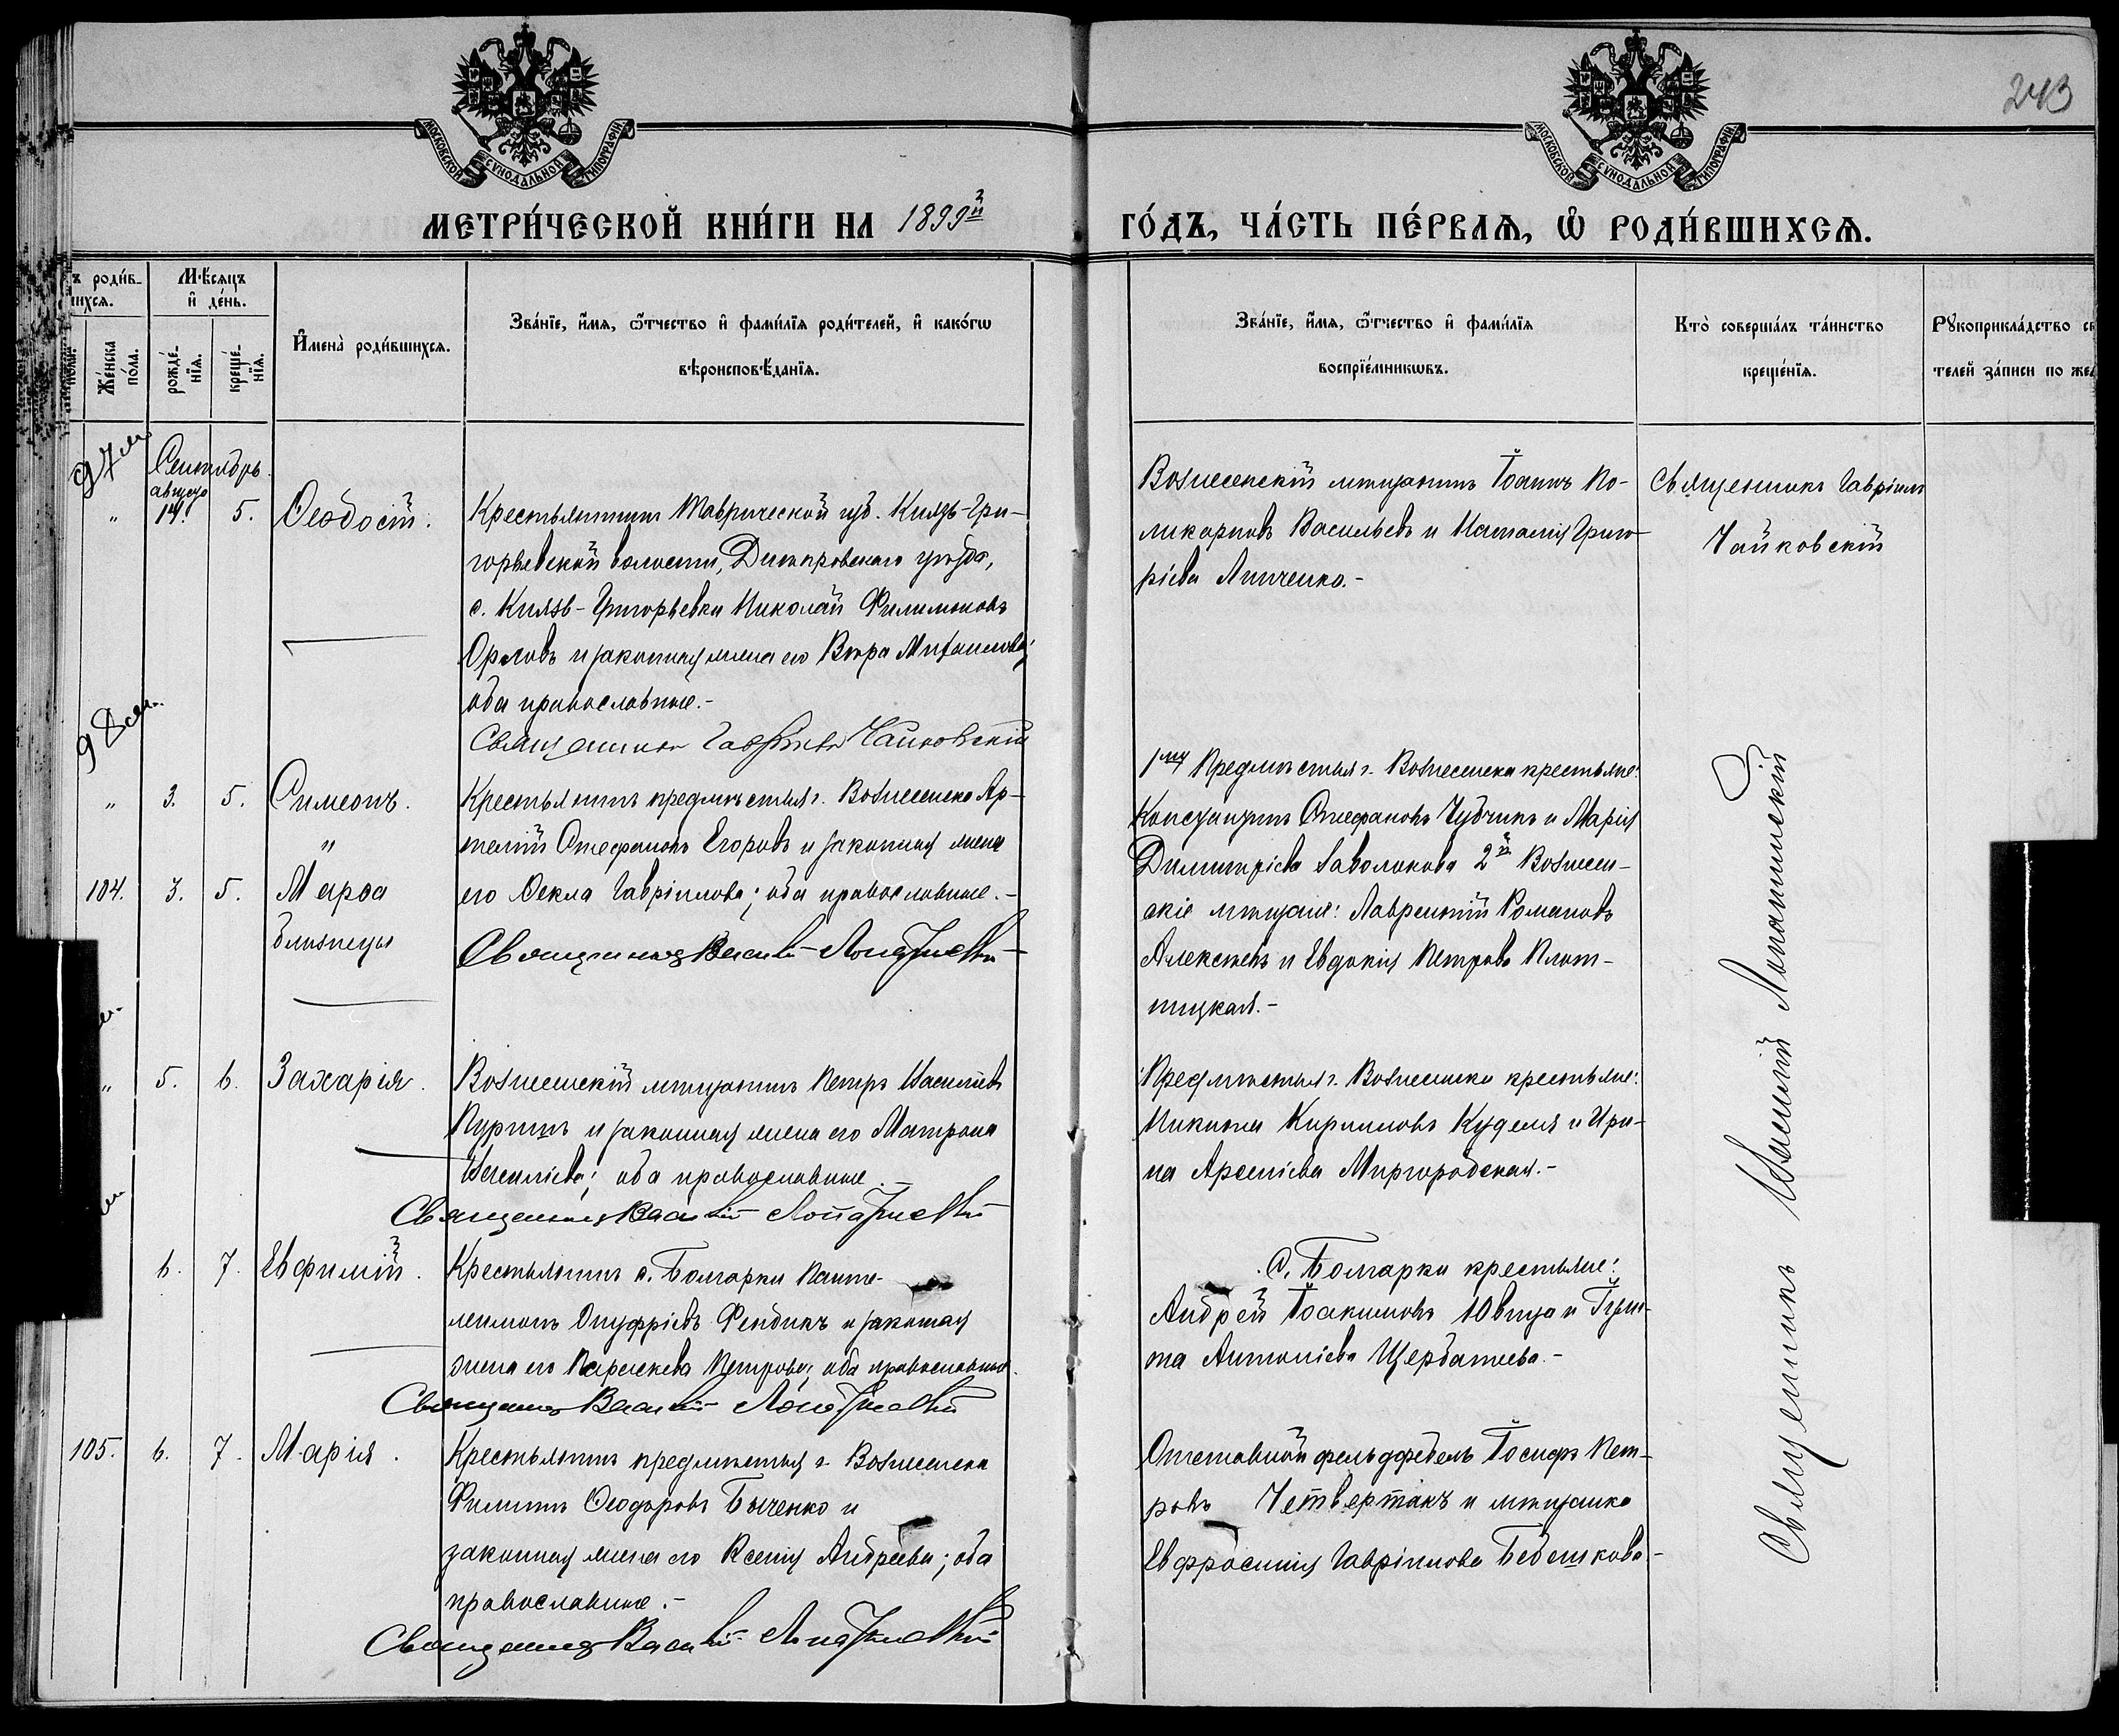 243
МОСКОВСКОЙ СУНОДАЛЬНОЙ ТИПОГРАФІИ
МОСКОВСКОЙ СУНОДАЛЬНОЙ ТИПОГРАФІИ
МЕТРИ́ЧЕСКОЙ КНИ́ГИ НА 1899й
ГО́ДЪ, ЧА́СТЬ ПЕ́РВАѦ, Ѿ РОДИ́ВШИХСѦ.
ъ роди́в-
шихсѧ.
Же́нска
по́ла.
Мѣ́сѧцъ
и҆ де́нь.
рожде́-
нїѧ.
креще́-
нїѧ.
И҆мена̀ роди́вшихсѧ.
Зва́нїе, и҆́мѧ, ѻ҆́тчество и҆ фами́лїѧ роди́телей, и҆ како́гѡ
вѣроисповѣ́данїѧ.
Зва́нїе, и҆́мѧ, ѻ҆́тчество и҆ фами́лїѧ
воспрїе́мникѡвъ.
Кто̀ соверша́лъ та́инство
креще́нїѧ.
Рꙋкоприкла́дство св
телей за́писи по жел
97
Сентябрь
августа
" 14. 5. Ѳеодосій.
Крестьянинъ Таврической губ. Князь-Гри-
горьевской волости, Днѣпровскаго уѣзда,
с. Князь-Григорьевки Николай Филимоновъ
Орловъ и законная жена его Вѣра Михаилова;
оба православные.-
Священникъ Гавріилъ Чайковскій
Вознесенскій мѣщанинъ Іоаннъ По-
ликарповъ Васильевъ и Наталія Григо-
ріева Линченко.-
Священникъ Гавріилъ
Чайковскій
98
" 3. 5. Симеонъ.
"
104. 3. 5. Марѳа
близнецы
Крестьянинъ предмѣстья г. Вознесенска Ар-
темій Стефановъ Егоровъ и законная жена
его Ѳекла Гавріилова; оба православные.-
Священникъ Василій Лопатинскій
1му Предмѣстья г. Вознесенска крестьяне:
Стефановъ Чубчикъ и Марія
Димитріева Заволокова 2й Вознесен-
скіе мѣщане: Лаврентій Романовъ
Алексѣевъ и Евдокія Петрова Плот-
ницкая.-
" 5. 6. Захарія.
Вознесенскій мѣщанинъ Петръ Василіевъ
и законная жена его Матрона
Василіева; оба православные.-
Священникъ Василій Лопатинскій
Предмѣстья г. Вознесенска крестьяне:
Никита Кирилловъ Куделя и Ири-
на Арсеніева Миргородская.-
6. 7. Евфимій.
Крестьянинъ с. Болгарки Панте-
леимонъ Онуфріевъ Фендикъ и законная
жена его Параскева Петрова; оба православные.
Священникъ Василій Лопатинскій
С. Болгарки крестьяне:
Андрей Іоакимовъ Ювица и Іули-
та Антоніева Щербатьева.-
105. 6. 7. Марія.
Крестьянинъ предмѣстья г. Вознесенска
Филиппъ Ѳеодоровъ Быченко и
законная жена его Ксенія Андреева; оба
православные.-
Священникъ Василій Лопатинскій
Отставной фельдфебель Іосифъ Пет-
ровъ Четвертакъ и мѣщанка
Евфросинія Гавріилова Бебешкова-
Священникъ Василій Лопатинскій